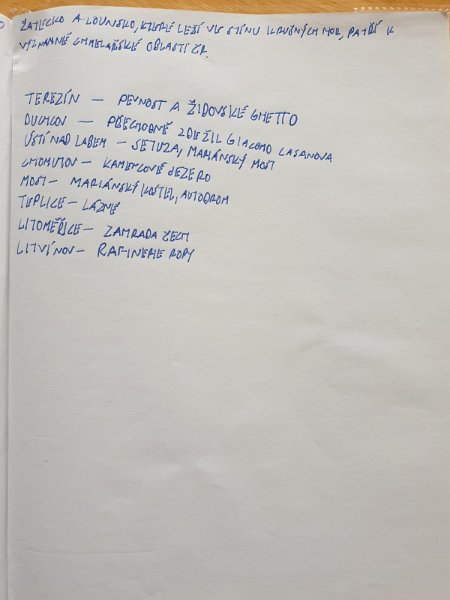 ŽATECKO A LOUNSKO, KTERÉ LEŽÍ VE STÍNU KRUŠNÝCH HOR, PATŘÍ K
VÝZNAMNÉ CHMELAŘSKÉ OBLASTI ČR.
TEREZÍN – PEVNOST A ŽIDOVSKÉ GHETTO
DUCHCOV – PŘECHODNĚ ZDE ŽIL GIACOMO CASANOVA
ÚSTÍ NAD LABEM – SETUZA, MARIÁNSKÝ MOST
CHOMUTOV – KAMENCOVÉ JEZERO
MOST – MARIÁNSKÝ KOSTEL, AUTODROM
TEPLICE – LÁZNĚ
LITOMĚŘICE – ZAHRADA ČECH
LITVÍNOV – RAFINERIE ROPY